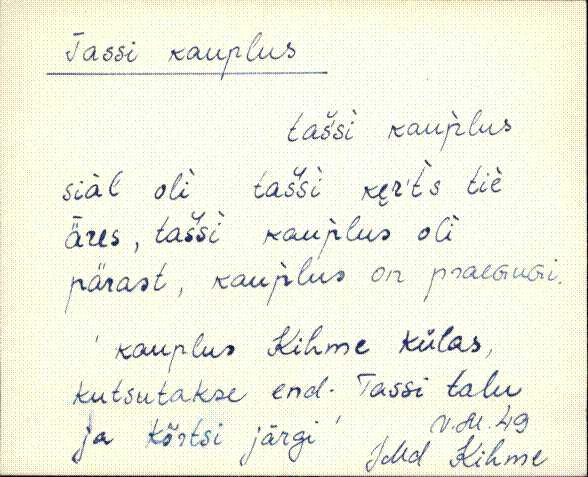 Tassi kauplus
tašsì kaup̀lus
siàl olì tašsì kęr't̀s tiè
äres, tašsì kaup̀lus olì
pärast, kaup̀lus on praegugi.
' kauplus Kihme külas,
kutsutakse end. Tassi talu
ja kõrtsi järgi '
V. M. 49
Kihme